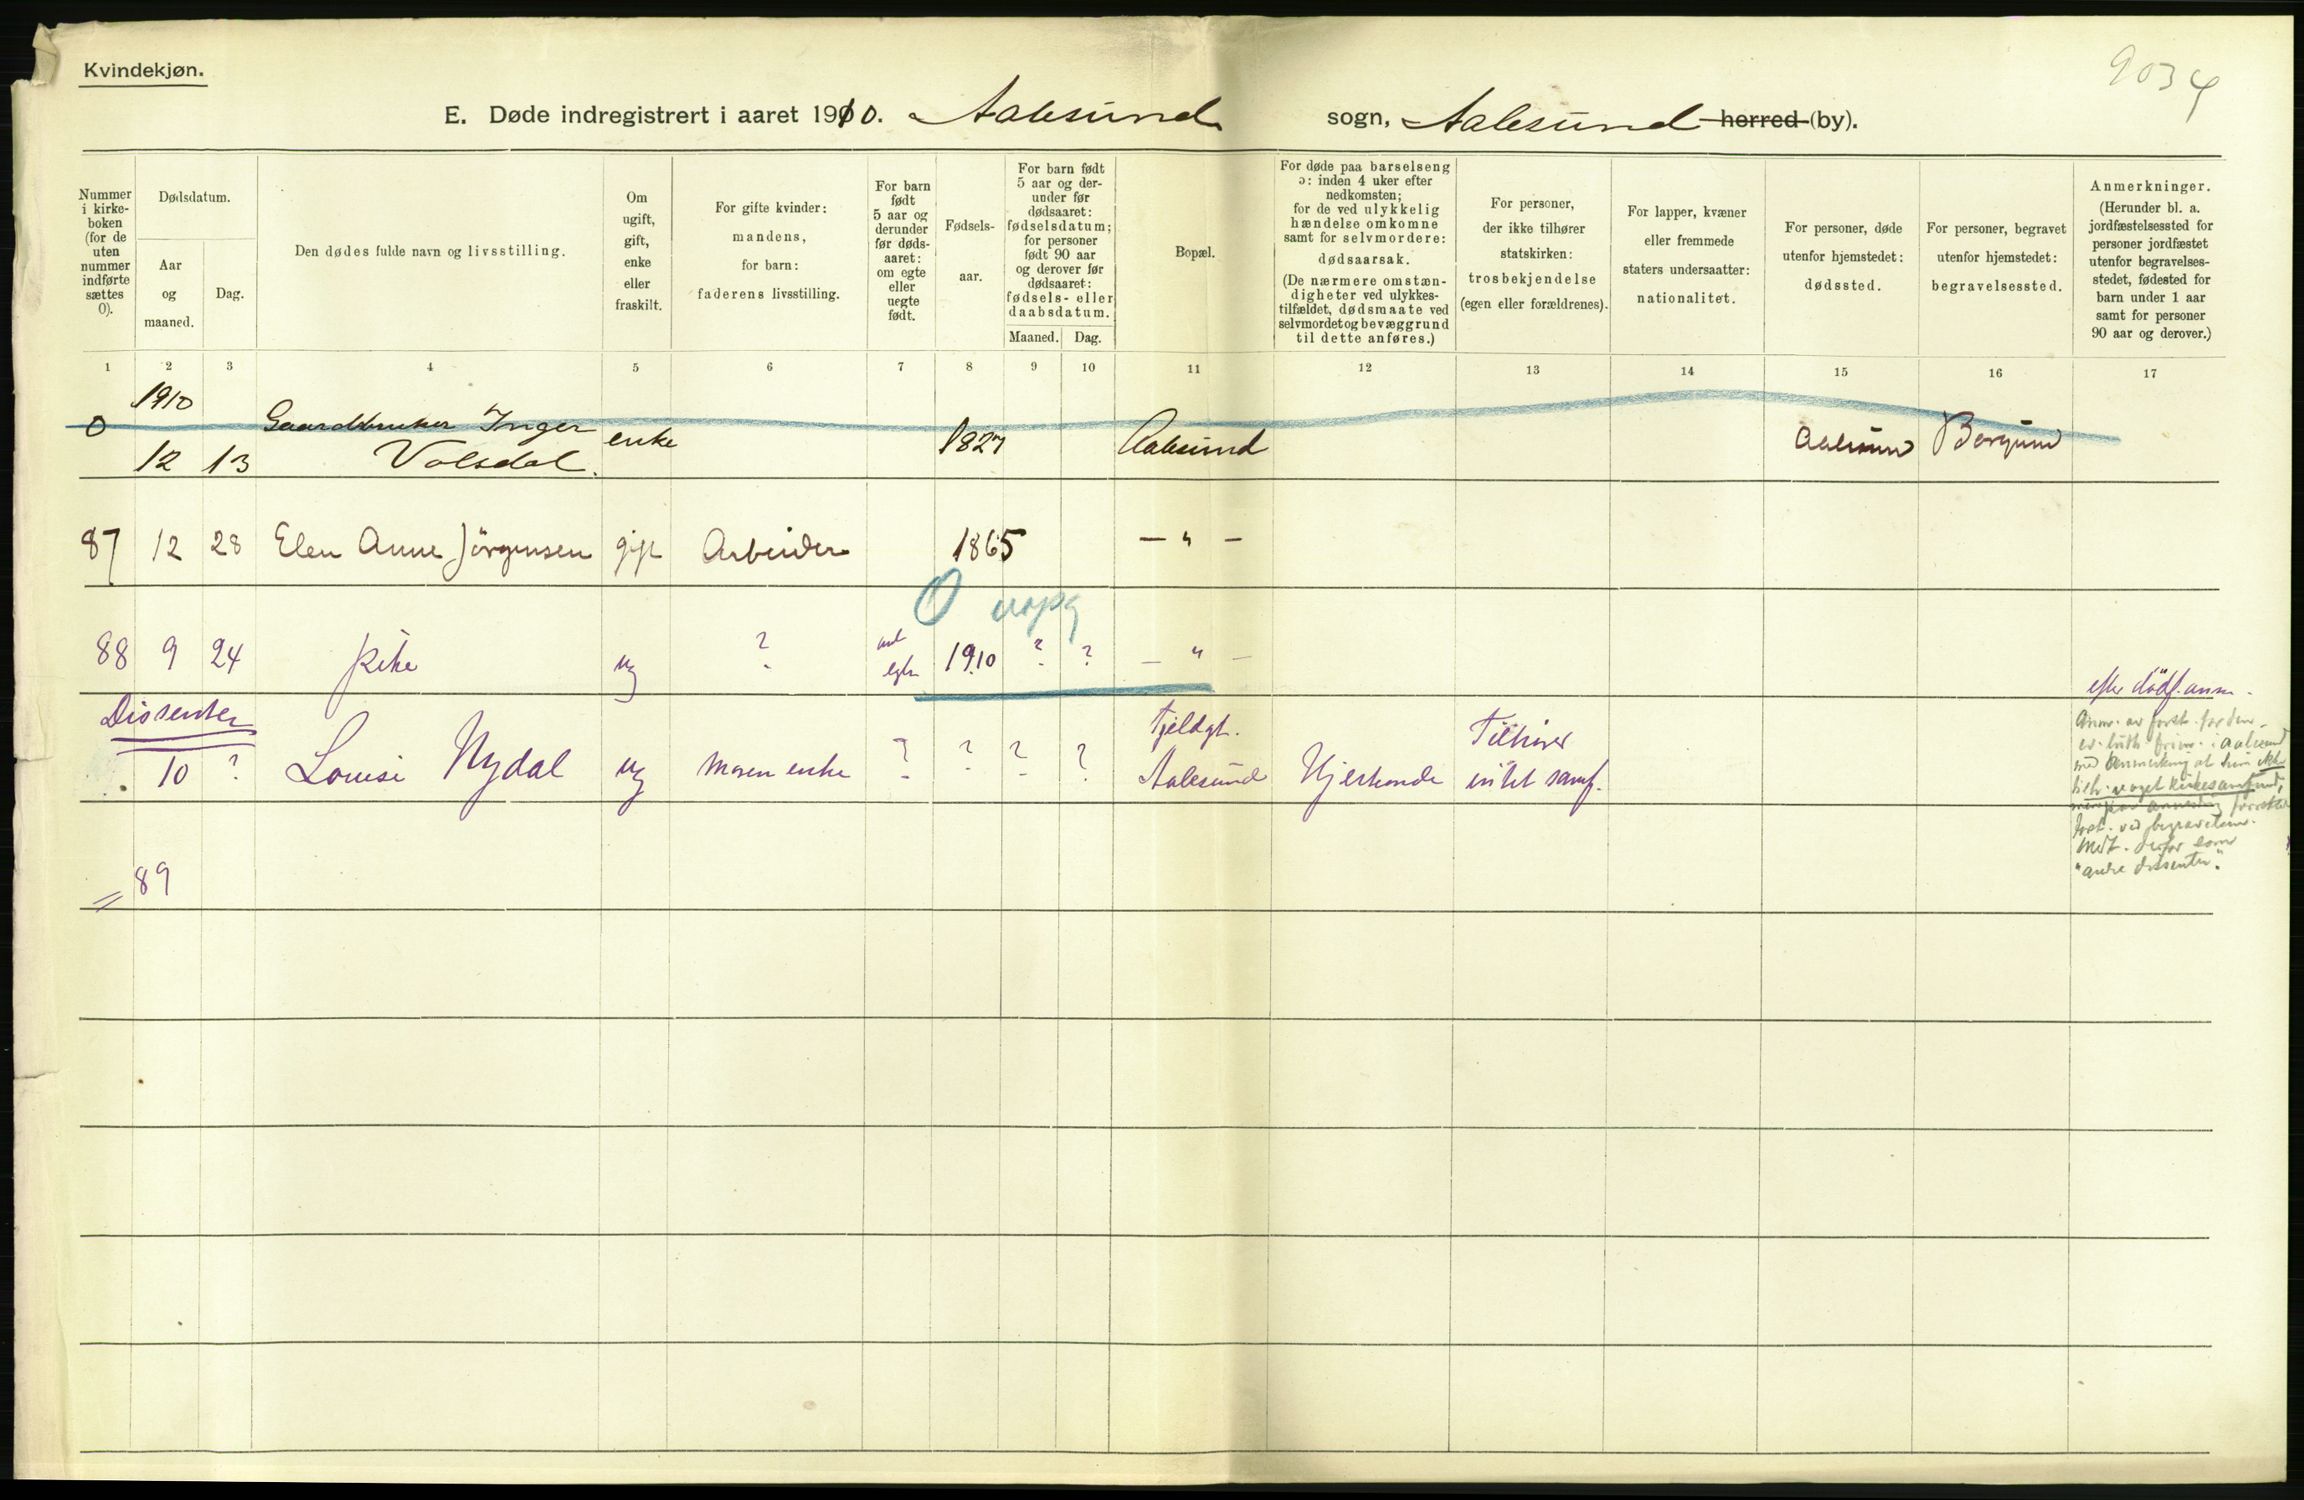 Kvindekjøn.
9034
E. Døde indregistrert i aaret 1910. Aalesund sogn, Aalesund herred (by).
Nummer i kirkeboken (for de uten nummer indførte sættes 0).
Dødsdatum.
Aar og maaned.
Dag.
Den dødes fulde navn og livsstilling.
Om ugift, gift, enke eller fraskilt.
For gifte kvinder: mandens, for barn: faderens livsstilling.
For barn født 5 aar og derunder før dødsaaret: om egte eller uegte født.
Fødselsaar.
For barn født 5 aar og derunder før dødsaaret: fødselsdatum; for personer født 90 aar og derover før dødsaaret: fødsels- eller daabsdatum.
Maaned. Dag.
Bopæl.
For døde paa barselseng ɔ: inden 4 uker efter nedkomsten; for de ved ulykkelig hændelse omkomne samt for selvmordere: dødsaarsak.
(De nærmere omstændigheter ved ulykkestilfældet, dødsmaate ved selvmordet og bevæggrund til dette anføres.)
For personer, der ikke tilhører statskirken: trosbekjendelse (egen eller forældrenes).
For lapper, kvæner eller fremmede staters undersaatter: nationalitet.
For personer, døde utenfor hjemstedet: dødssted.
For personer, begravet utenfor hjemstedet: begravelsessted.
Anmerkninger.
(Herunder bl. a. jordfæstelsessted for personer jordfæstet utenfor begravelsesstedet, fødested for barn under 1 aar samt for personer 90 aar og derover.)
1 2 3 4 5 6 7 8 9 10 11 12 13 14 15 16 17
1910
0 12 13 Gaardbruker Inger Volsdal. enke 1827 Aalesund Aalesund Borgund
87 12 28 Elen Anne Jörgensen gift Arbeider 1865 — " —
0 uopg
88 9 24 Pike ug ? 1910 ? ? — " —
efter dödf. anm.
Dissenter
10 ? Louise Nydal ug Moren enke ? ? ? ? Fjeldgt. Aalesund Hjerteonde Tilhörer intet samf.
"andre dissenter".
= 89